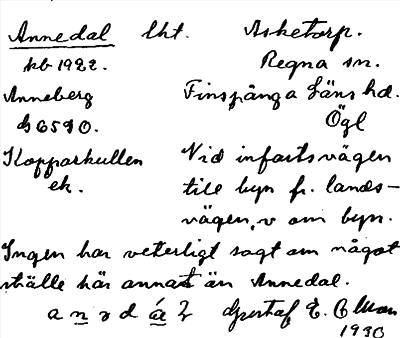 Annedal lht. Asketorp.
kb 1922. Regna sn.
Anneberg Finspånga läns hd.
G6590. Ögl
Kopparkullen Vid infartsvägen
ek. till byn fr. lands-
vägen, v om byn.
Ingen har veterligt sagt om något
ställe här annat än Annedal.
a n d Gustaf E.
1930